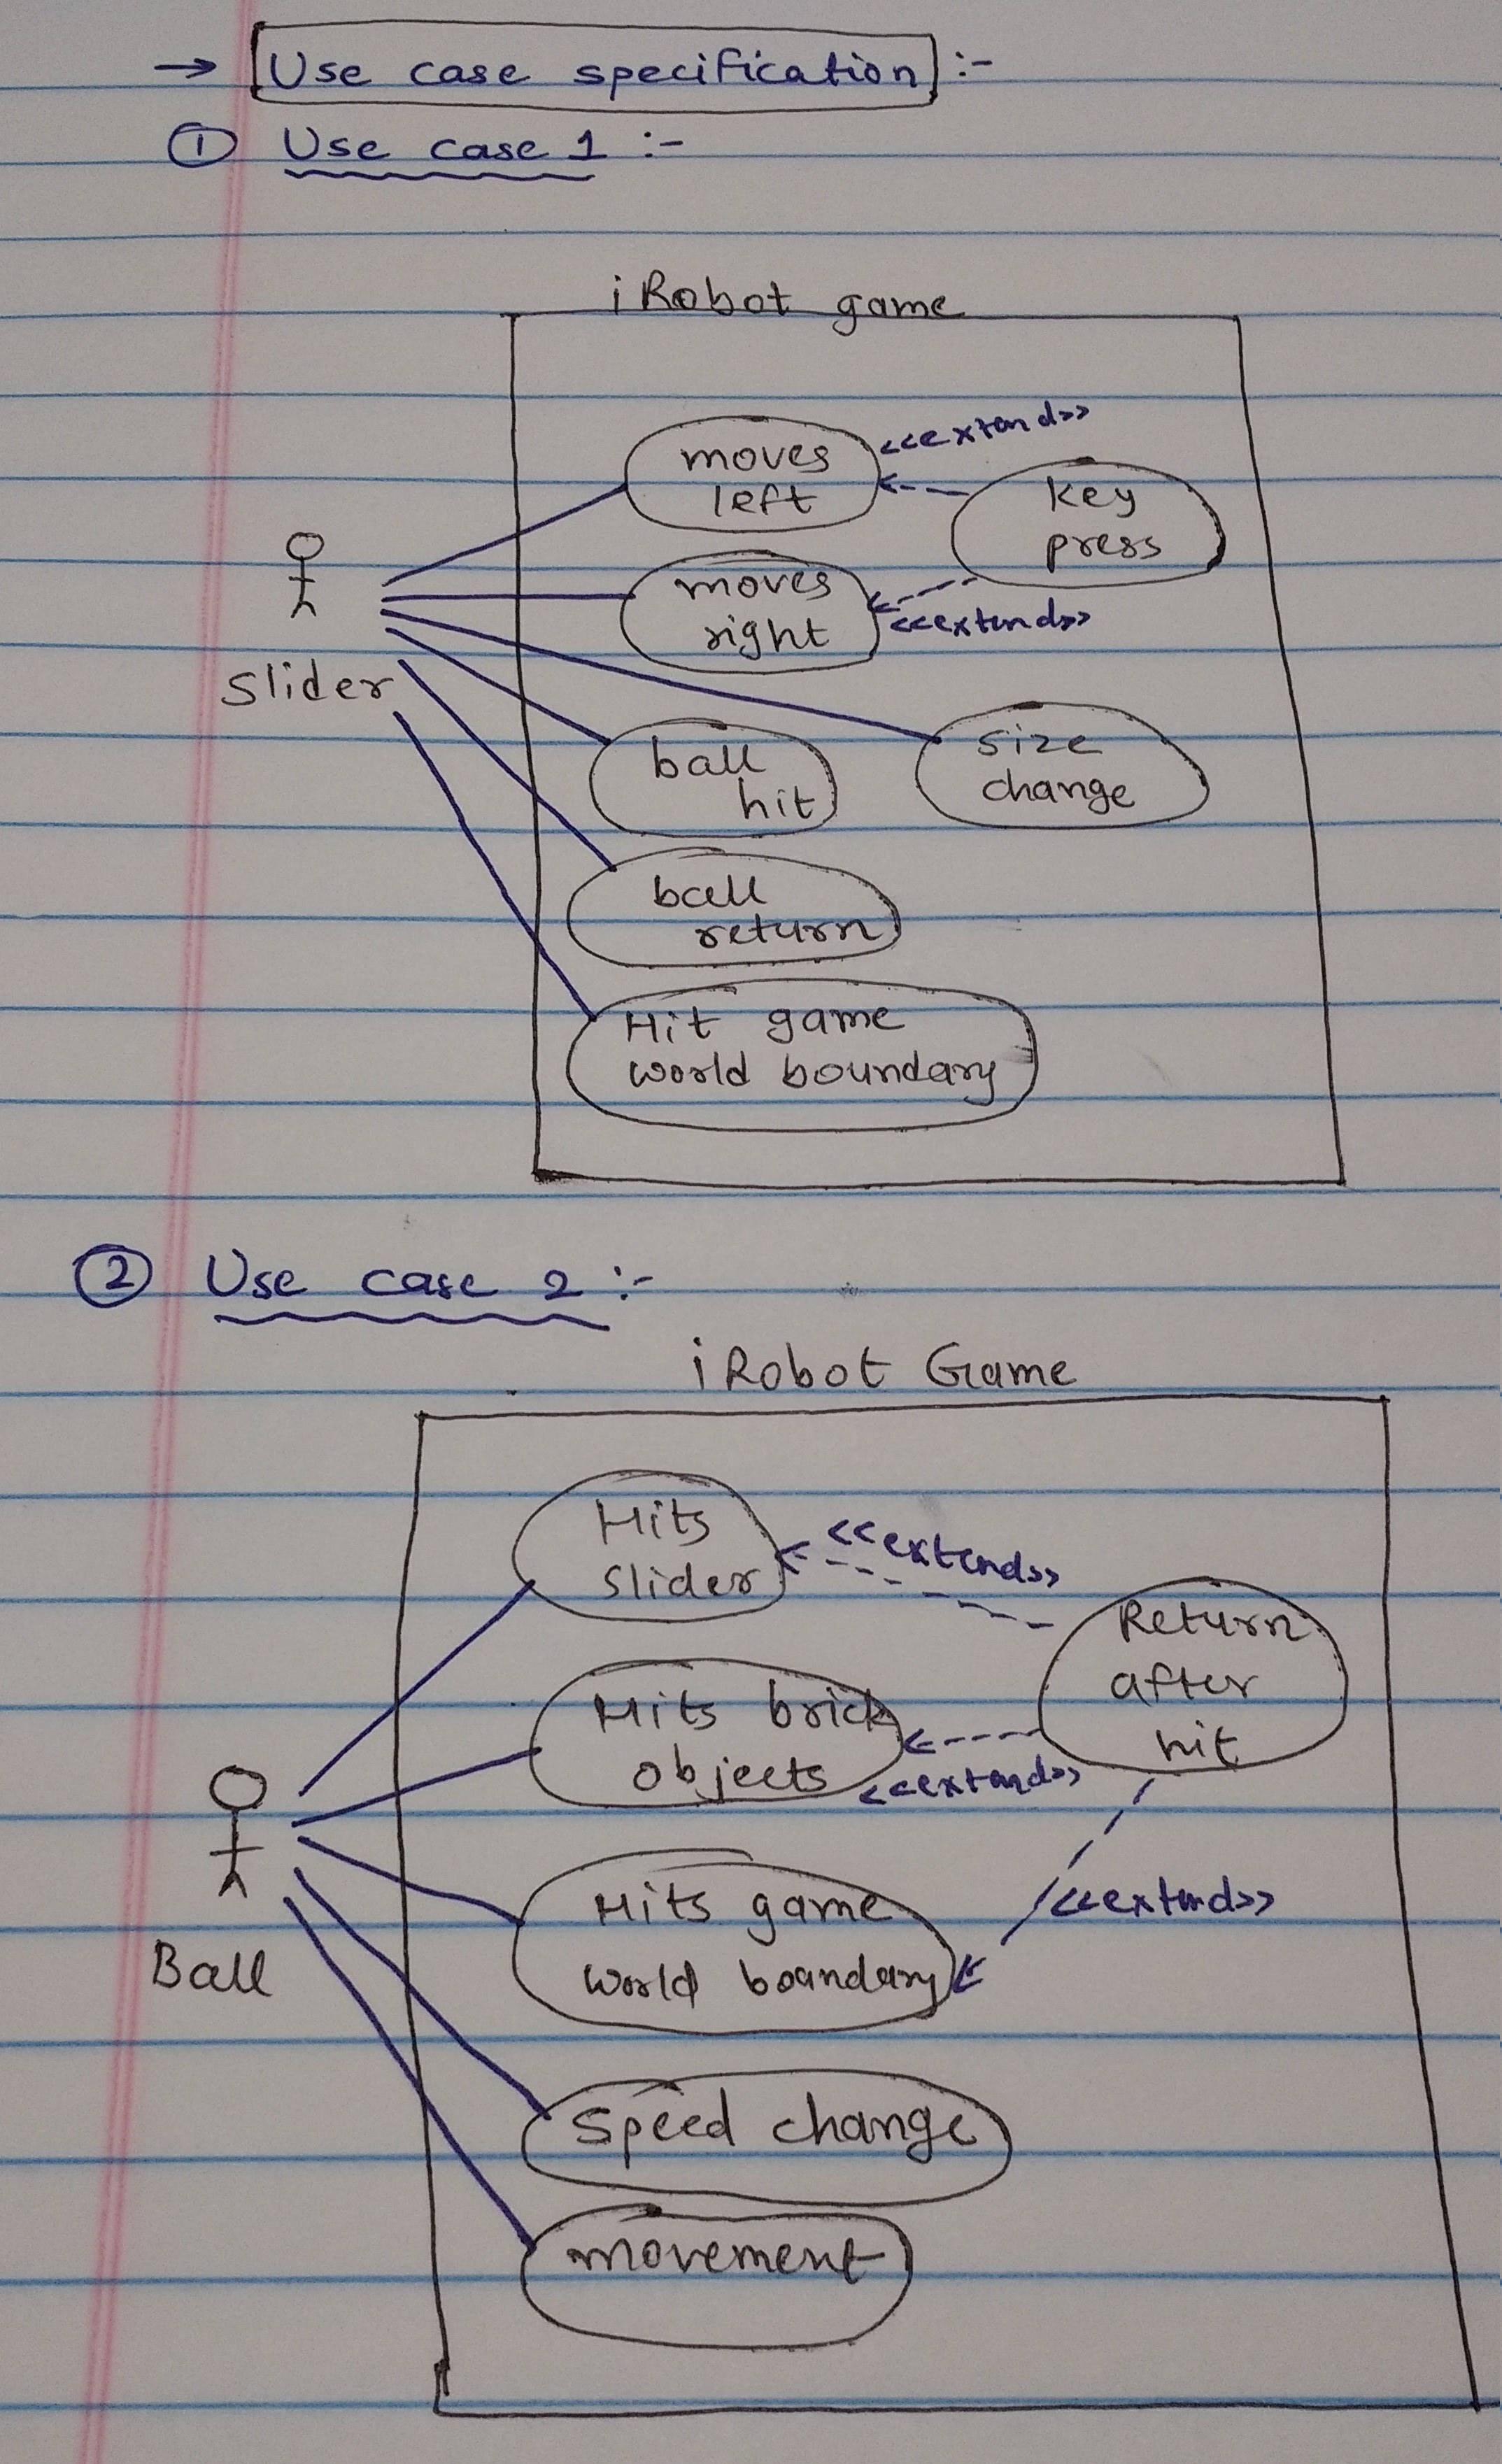 → Use case specification :-
① Use case 1 :-
iRobot game
moves
left
<<extend>>
Key
press
moves
right
<<extend>>
Slider
ball
hit
size
change
ball
return
Hit game
world boundary
② Use case 2 :-
iRobot Game
Hits
slider
<<extend>>
Return
after
hit
Hits brick
objects
<<extend>>
Hits game
world boundary
<<extend>>
Ball
speed change
movement